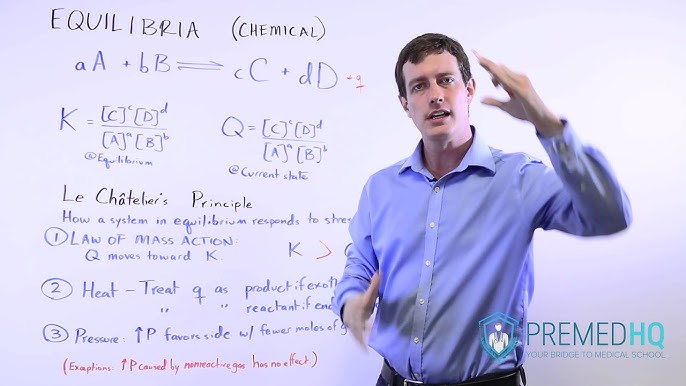 EQUILIBRIA (CHEMICAL)
aA + bB ⇌ cC + dD + q
K = [C]^c[D]^d / [A]^a[B]^b
@Equilibrium
Q = [C]^c[D]^d / [A]^a[B]^b
@Current state
Le Châtelier's Principle
How a system in equilibrium responds to stres
① LAW OF MASS ACTION:
Q moves toward K.
K >
② Heat – Treat q as product if exoth
" " reactant if end
③ Pressure: ↑P favors side w/ fewer moles of g
(Exceptions: ↑P caused by nonreactive gas has no effect)
PREMEDHQ
YOUR BRIDGE TO MEDICAL SCHOOL